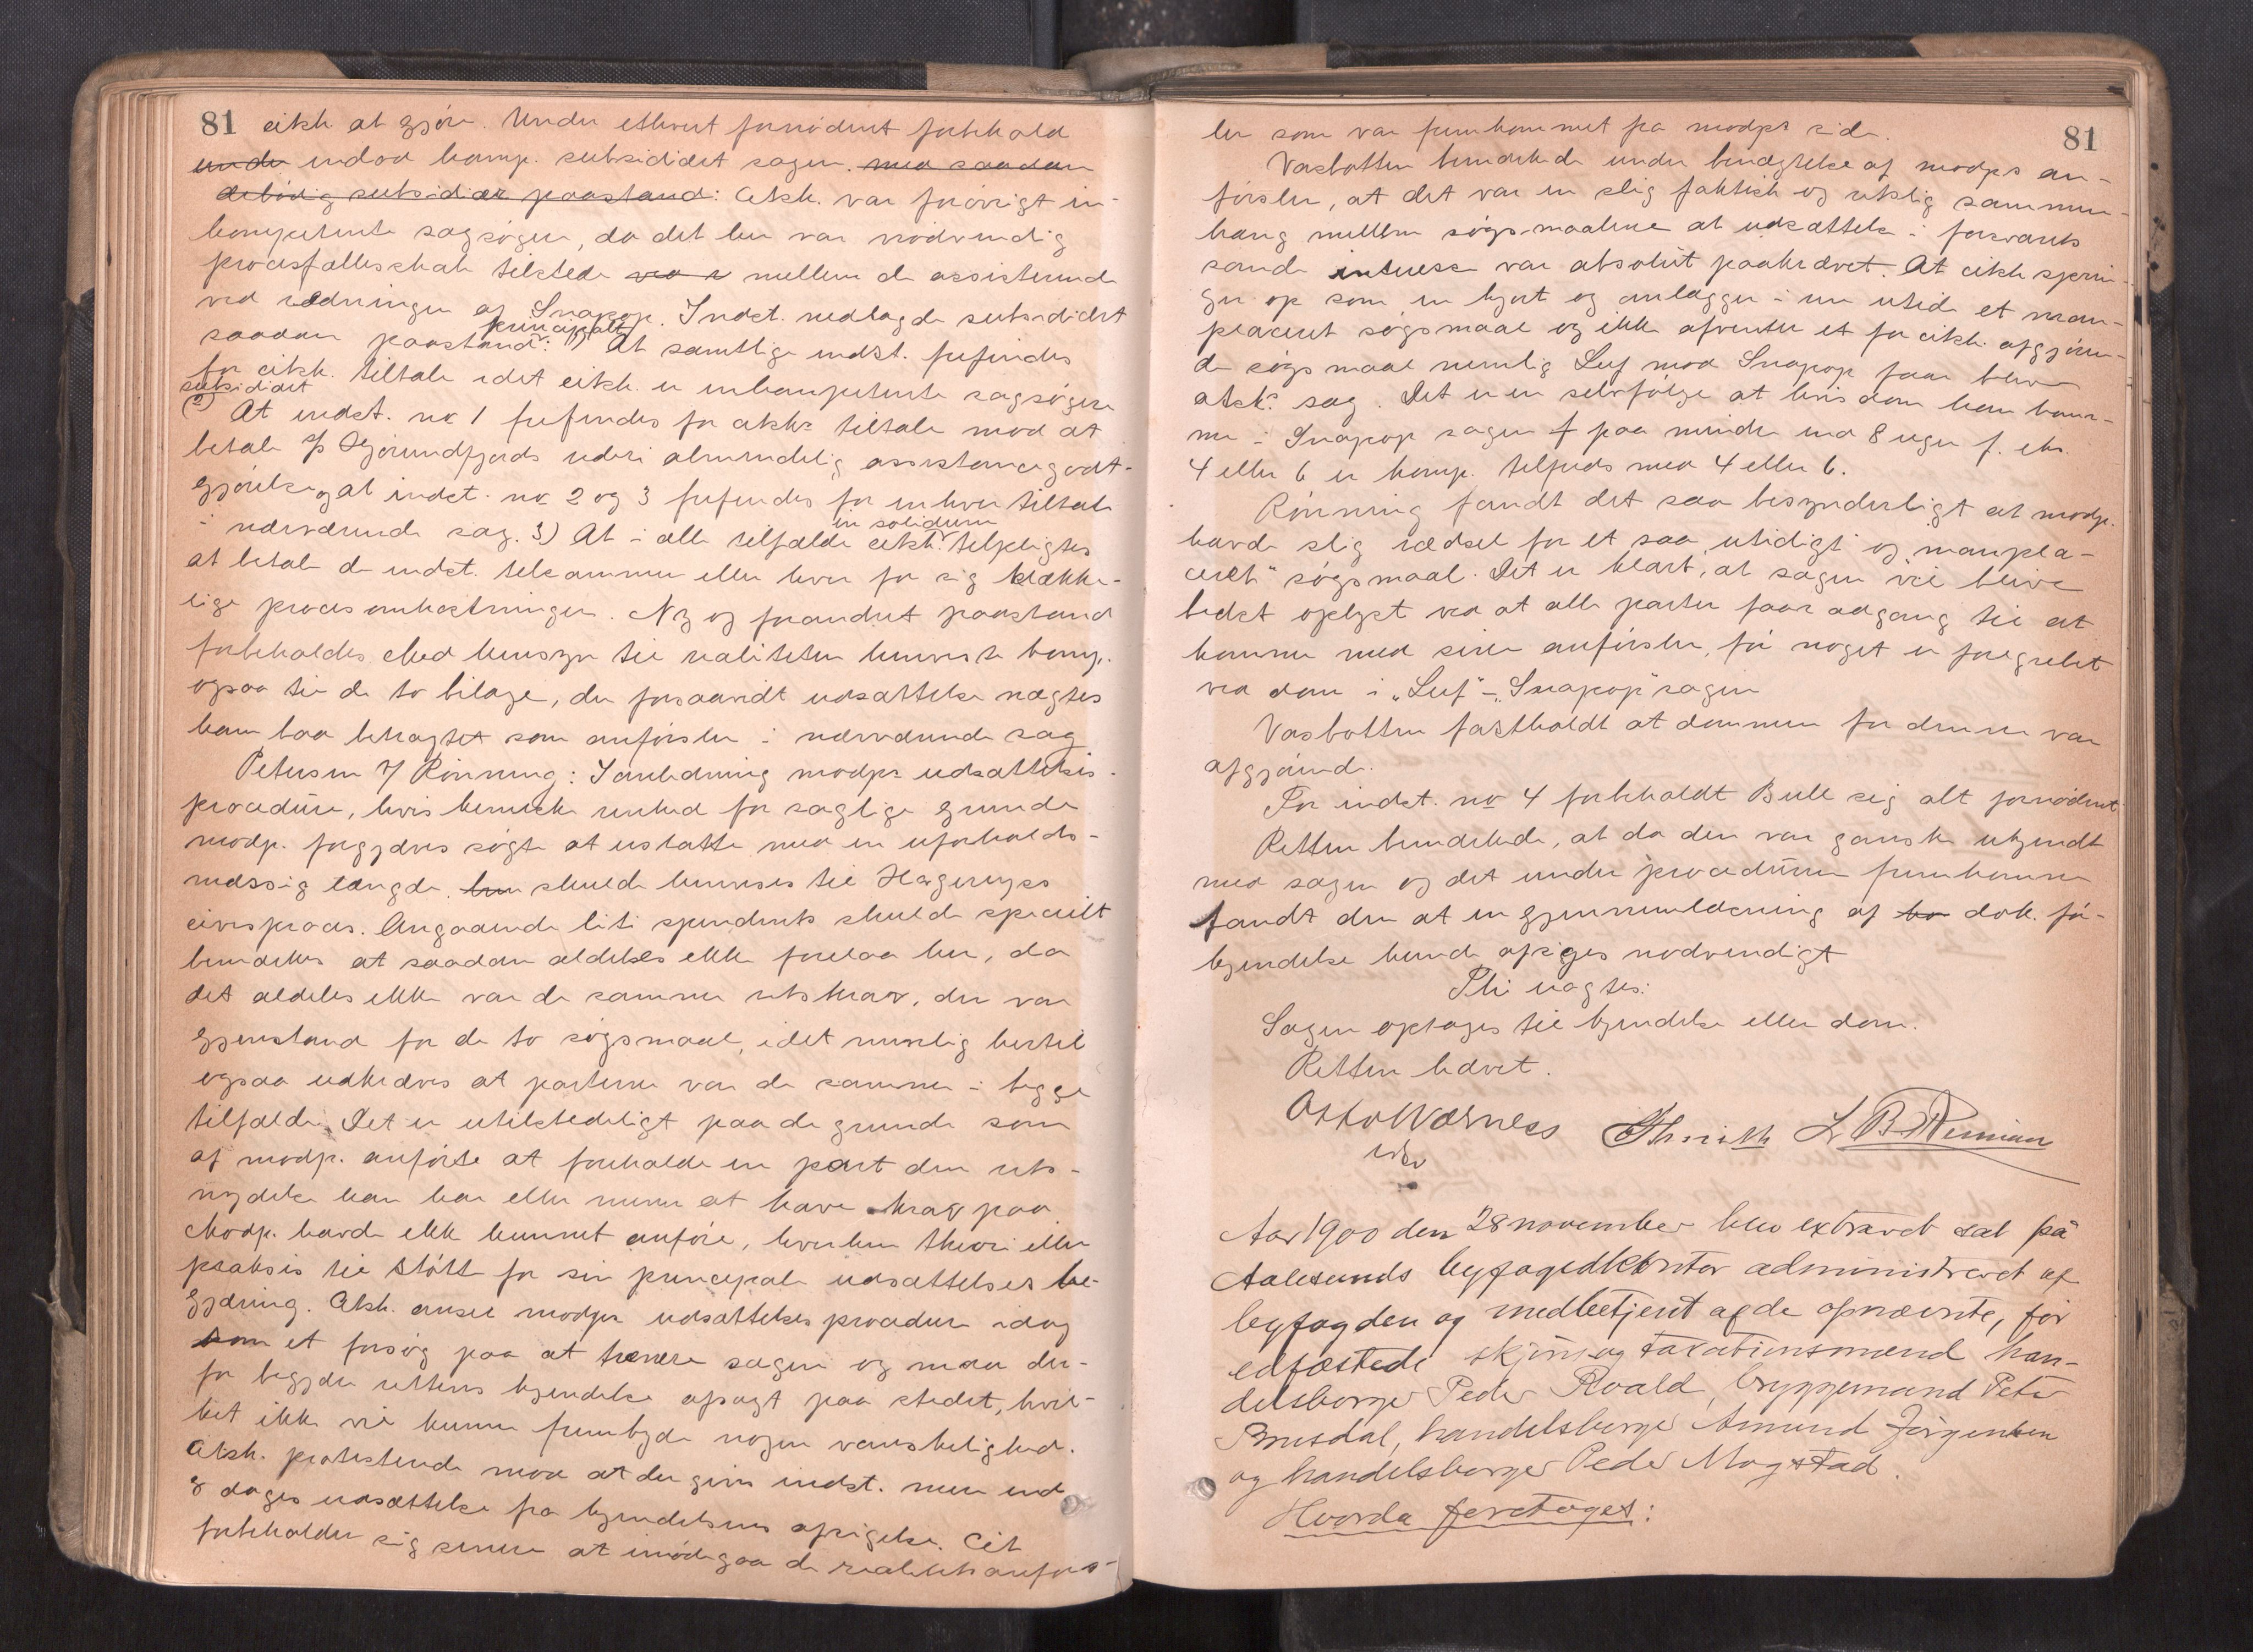 81 citk. at gjøre. Under ethvert fornødent forbehold
under indlod komp. subsidiært sagen. med saadan
debörig subsidiær paastand: Citk. var forövrigt in-
kompetente sagsøgere, da det her var nödvendig
procesfællesskab tilstede mellem de assisterende
ved redningen af Snapop. Indst. nedlagde subsidiært
saadan paastand: principalt 1) At samtlige indst. frifindes
for citk. tiltale idet citk. er inkompetente sagsøgere
subsidiært
2) At indst. no 1 frifindes for citks tiltale mod at
betale D/S Hjørundfjords rederi almindelig assistancegodt-
gjörelse og at indst. no 2 og 3 frifindes for enhver tiltale
i nærværende sag. 3) At i alle tilfælde citk. in solidum tilpligtes
at betale de indst. tilsammen eller hver for sig klække-
lige procesomkostninger. Ny og forandret paastand
forbeholdes. Med hensyn til realiteten henviste komp.
ogsaa til de to bilage, der forsaavidt udsættelse nægtes
kan bli betragtet som anförsler i nærværende sag
Petersen f/ Rönning: I anledning modps udsættelses-
procedüre, hvis knaphed for saglige grunde
modp. forgjæves sögte at erstatte med en uforholds-
mæssig længde. skulde henvises til Hagerups
civilproces. Angaaende litispendents skulde specielt
bemærkes at saadan aldeles ikke forelaa her, da
det aldeles ikke var de samme retskrav, der var
gjenstand for de to sögsmaal, idet nemlig hertil
ogsaa udkræves at parterne var de samme i begge
tilfælde. Det er utilstedeligt paa de grunde som
af modp. anförte at forholde en part den rets-
nydelse han har eller mener at have krav paa.
Modp. havde ikke kunnet anføre, hverken theori eller
praksis til stötte for sin principale udsættelses be-
gjæring. Citk. anser modps udsættelses procedure idag
som et forsøg paa at trenere sagen og maa der-
for begjære rettens kjendelse afsagt paa stedet, hvil-
ket ikke vil kunne frembyde nogen vanskelighed.
Citk. protesterede mod at der gives indst. mere end
8 dages udsættelse fra kjendelsens afsigelse. Cit.
forbeholder sig senere at imödegaa de realitetsanförs-
81
ler som var fremkommet fra modps side.
Vasbotten bemærkede under benægtelse af modps an-
førsler, at det var en slig faktisk og retslig sammen-
hæng mellem søgsmaalene at udsættelse i forsvarets
sande interesse var absolut paakrævet. At citk sprin-
ger op som en hjort og anlægger i en utide et man-
placeret søgsmaal og ikke afventer et for citk. afgjören-
de søgsmaal nemlig Leif mod Snapop faar blive
citks. sag. Det er en selvfölge at hvis dom kan kom-
me i Snapop sagen paa mindre end 8 uger f. eks.
4 eller 6 er komp. tilfreds med 4 eller 6.
Rönning fandt det saa besynderligt at modp.
havde slig rædsel for et saa „utidigt og manpla-
ceret“ søgsmaal. Det er klart, at sagen vil blive
bedst oplyst ved at alle parter faar adgang til at
komme med sine anförsler, för noget er foregrebet
ved dom i „Leif“–„Snapop“sagen
Vasbotten fastholdt at dommen for denne var
afgjørende.
For indst. no 4 forbeholdt Bull sig alt fornödent.
Retten bemærkede, at da den var ganske ukjendt
med sagen og det under procedüren fremkomne
fandt den at en gjennemlæsning af dok. för
kjendelse kunde afsiges nødvendigt
Thi vagtes:
Sagen optages til kjendelse eller dom.
Retten hævet.
Otto Værness
Aar 1900 den 28 november blev extraret sat på
Aalesunds byfogedkontor administreret af
byfogden og medbetjent af de opnævnte, før
edfæstede skjøns- og taxationsmænd han-
delsborger Peder Roald, bryggemand Peter
Brusdal, handelsborger Amund Jørgensen
og handelsborger Peder Magstad.
Hvorda foretoges: